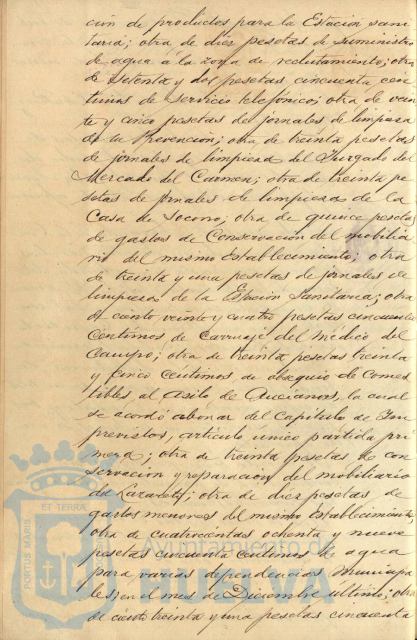 ción de productos para la Estación sani
taria; otra de diez pesetas de suministro
de agua á la zona de reclutamiento; otra
de setenta y dos pesetas cincuenta cen
timos de servicio telefónico; otra de vein
te y cinco pesetas del jornales de limpieza
de la Prevención; otra de treinta pesetas
de jornales de limpieza del Juzgado del
Mercado del Carmen; otra de treinta pe
setas de jornales de limpieza de la
Casa de Socorro; otra de quince pesetas
de gastos de Conservación del mobilia
rio del mismo establecimiento; otra
de treinta y una pesetas de jornales de
limpiezas de la Estación Sanitaria; otra
de ciento veinte y cuatro pesetas cincuenta
centimos de carruaje del Médico del
Campo; otra de treinta pesetas treinta
y cinco centimos de obsequio de Comes
tibles al Asilo de Ancianos, la cual
se acordó abonar del Capítulo de Im
previstos, artículo unico partida pri
mera; otra de treinta pesetas de con
servación y reparación del mobiliario
del Lazareto; otra de diez pesetas de
gastos menores del mismo Establecimiento
otra de cuatrocientas ochenta y nueve
pesetas cincuenta centimos de agua
para varias dependencias Municipa
les en el mes de Diciembre ultimo; otra
de ciento treinta y una pesetas cincuenta
ET TERRA
PORTUS MARIS
Ayuntamiento de